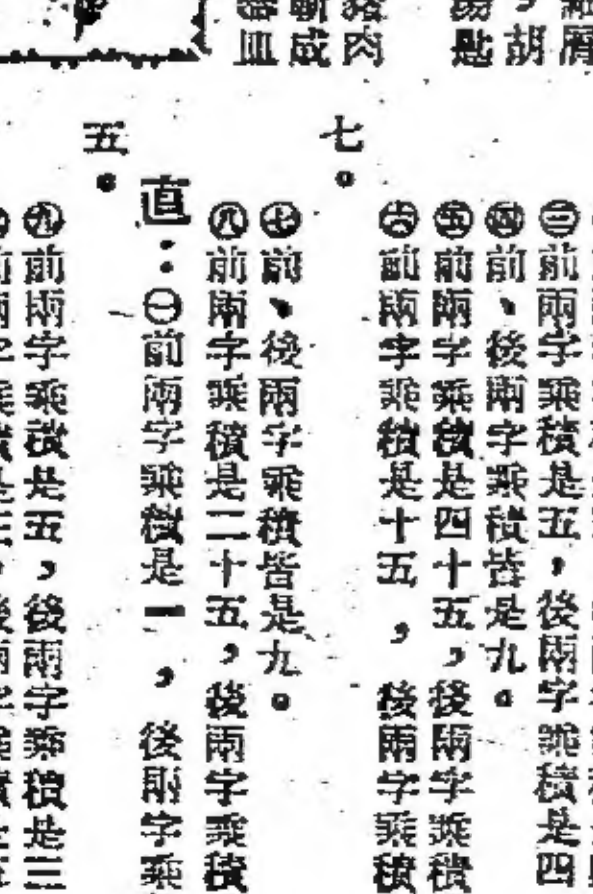 湯匙
，胡
豬肉
斬成
血
㊂前兩字乘積是五，後兩字乘積是四
㊃前、後兩字乘積皆是九。
㊄前兩字乘積是四十五，後兩字乘積
㊅前兩字乘積是十五，後兩字乘積
七。
㊆前、後兩字乘積皆是九。
㊇前兩字乘積是二十五，後兩字乘積
直：㊀前兩字乘積是一，後兩字乘
五。
㊈前兩字乘積是五，後兩字乘積是三